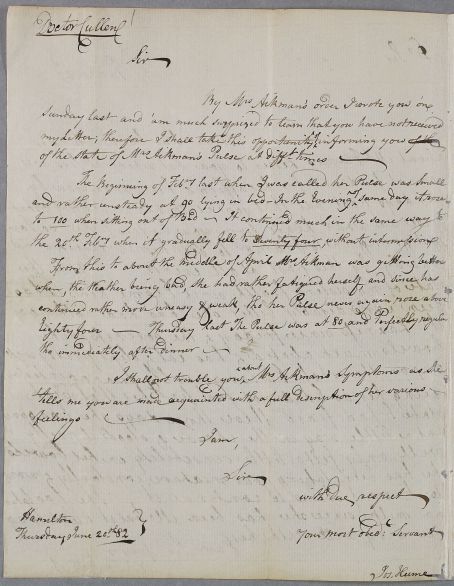 Doctor Cullen
Sir
By Mrs Aikman's order I wrote you on
Sunday last and am much surprized to learn that you have not received
my Letter, therefore I shall take this opportunity informing you
of the State of Mrs Aikman's Pulse at difft. times
The Beginning of Feby last when I was called her Pulse was Small
and rather unsteady at 90 lying in bed. In the Evening same day it rose
to 100 when sitting out of Bed — It continued much in the same way to
the 26th Feby when it gradually fell to Seventy four without intermissions
From this to about the middle of April Mrs Aikman was getting better
when, the Weather being bad, She had rather fatigued herself, and since has
continued rather more uneasy & weak, tho her Pulse never again rose above
Eighty four — Thursday last The Pulse was at 80 and Perfectly regular
tho immediately after dinner
I shall not trouble you about Mrs Aikmans Symptoms as She
tells me you are made acquainted with a full description of her various
feelings
I am,
Sir
with due respect
Your most obedt Servant
Jos. Hume
Hamilton
Thursday June 20th 82